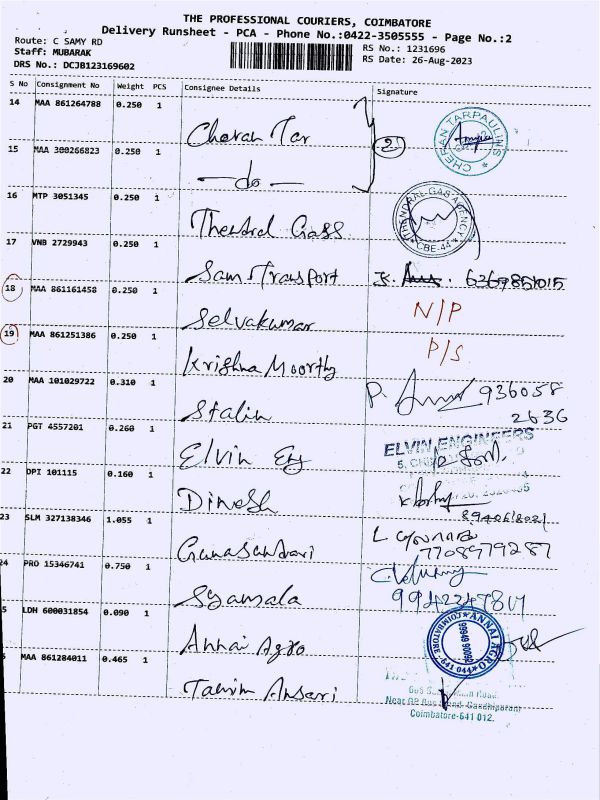 THE PROFESSIONAL COURIERS, COIMBATORE
Delivery Runsheet - PCA - Phone No.:0422-3505555 - Page No.:2
Route: C SAMY RD
Staff: MUBARAK
RS No.: 1231696
DRS No.: DCJB123169602
RS Date: 26-Aug-2023
S No Consignment No Weight PCS Consignee Details Signature
14 MAA 861264788 0.250 1 Cheran Tar 2 CHERAN TARPAULINS
15 MAA 300266823 0.250 1 —do—
16 MTP 3051345 0.250 1 Thendral Gass THENDRAL GAS AGENCY CBE-44
17 VNB 2729943 0.250 1 Sam Transport 6369851015
18 MAA 861161458 0.250 1 Selvakumar N/P
19 MAA 861251386 0.250 1 Krishna Moorthy P/S
20 MAA 101029722 0.310 1 Stalin P. 936058
2636
21 PGT 4557201 0.260 1 Elvin Eng ELVIN ENGINEERS
22 DPI 101115 0.160 1 Dinesh
23 SLM 327138346 1.055 1 Gunasundari L
7708979287
24 PRO 15346741 0.750 1 Syamala
9942247817
5 LDH 600031854 0.090 1 Annai Agro ANNAI AGRO COIMBATORE-641 044
MAA 861284011 0.465 1 Tamim Ansari
Main Road,
Near GP Bus Gandhipuram
Coimbatore-641 012.